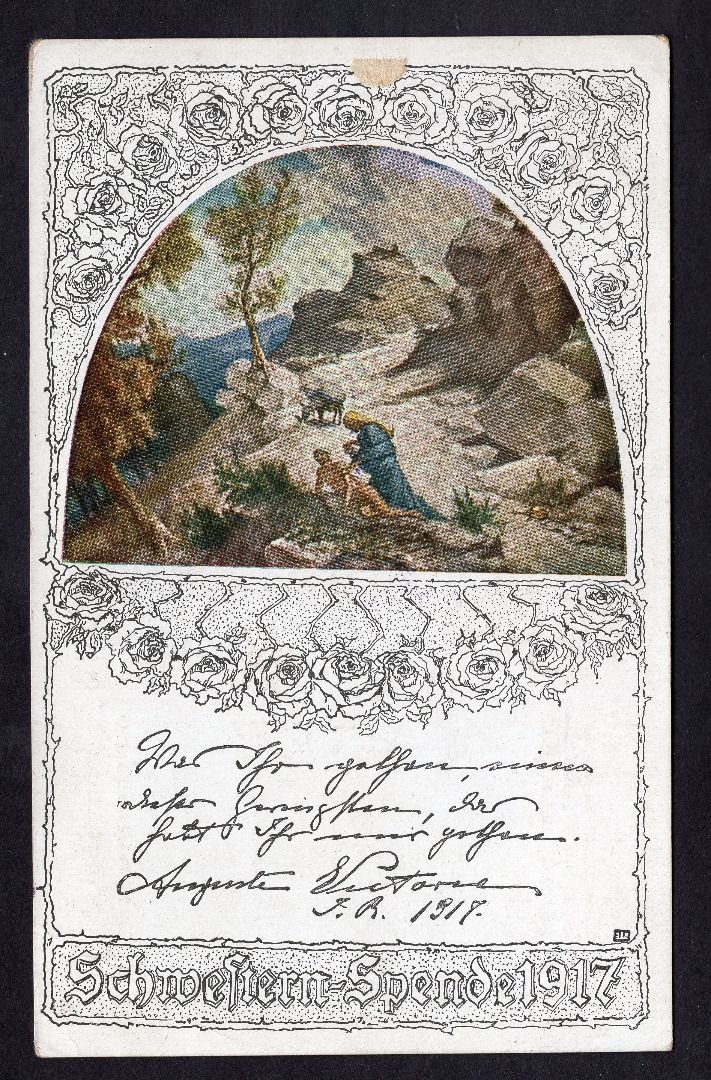 Was Ihr gethan einem
dieser Geringsten, das
habt Ihr mir gethan.
Auguste Victoria
I. R. 1917.
Schwestern-Spende 1917